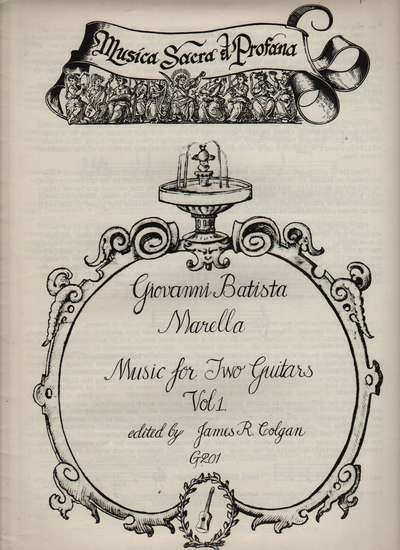 Musica Sacra et Profana
Giovanni Batista
Marella
Music for Two Guitars
Vol 1
edited by James R. Colgan
G201